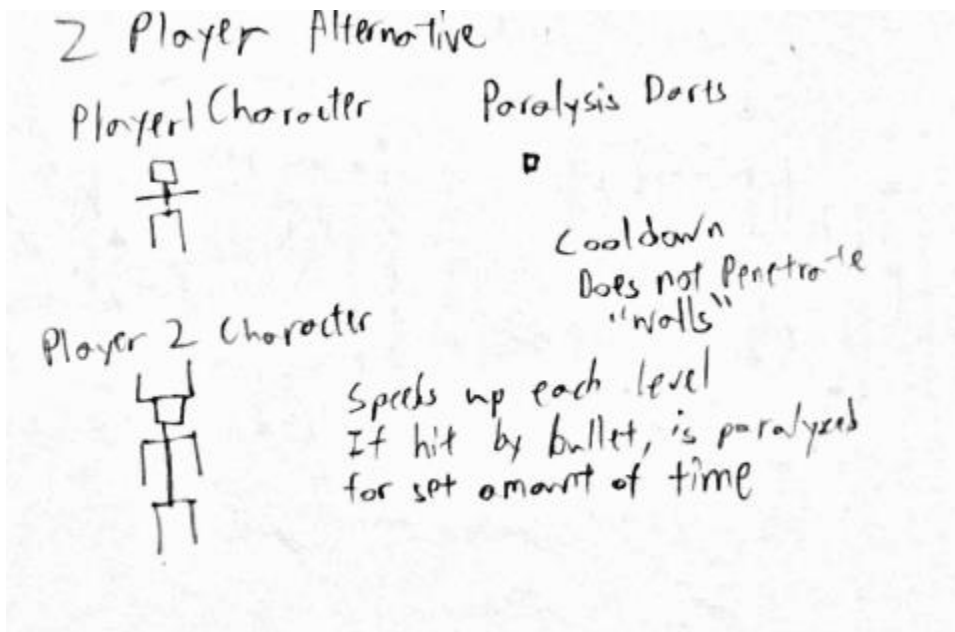 2 Player Alternative
Player1 Character
Paralysis Darts
Cooldown
Does not Penetrate
"walls"
Player 2 Character
Speeds up each level
If hit by bullet, is paralyzed
for set amount of time